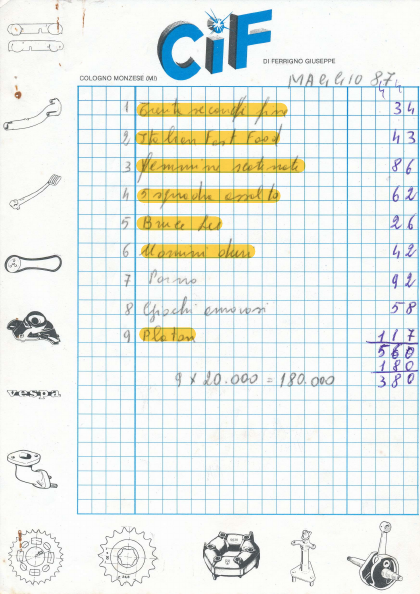 CIF
DI FERRIGNO GIUSEPPE
COLOGNO MONZESE (MI)
MAGGIO 87
1 Trenta secondi fine 34
2 Italian Fast Food 43
3 femmine scatenate 86
4 Squadra assalto 62
5 Bruce Lee 26
6 Uomini duri 42
7 Porno 92
8 Giochi amorosi 58
9 Platoon 117
560
180
9 x 20.000 = 180.000 380
vespa